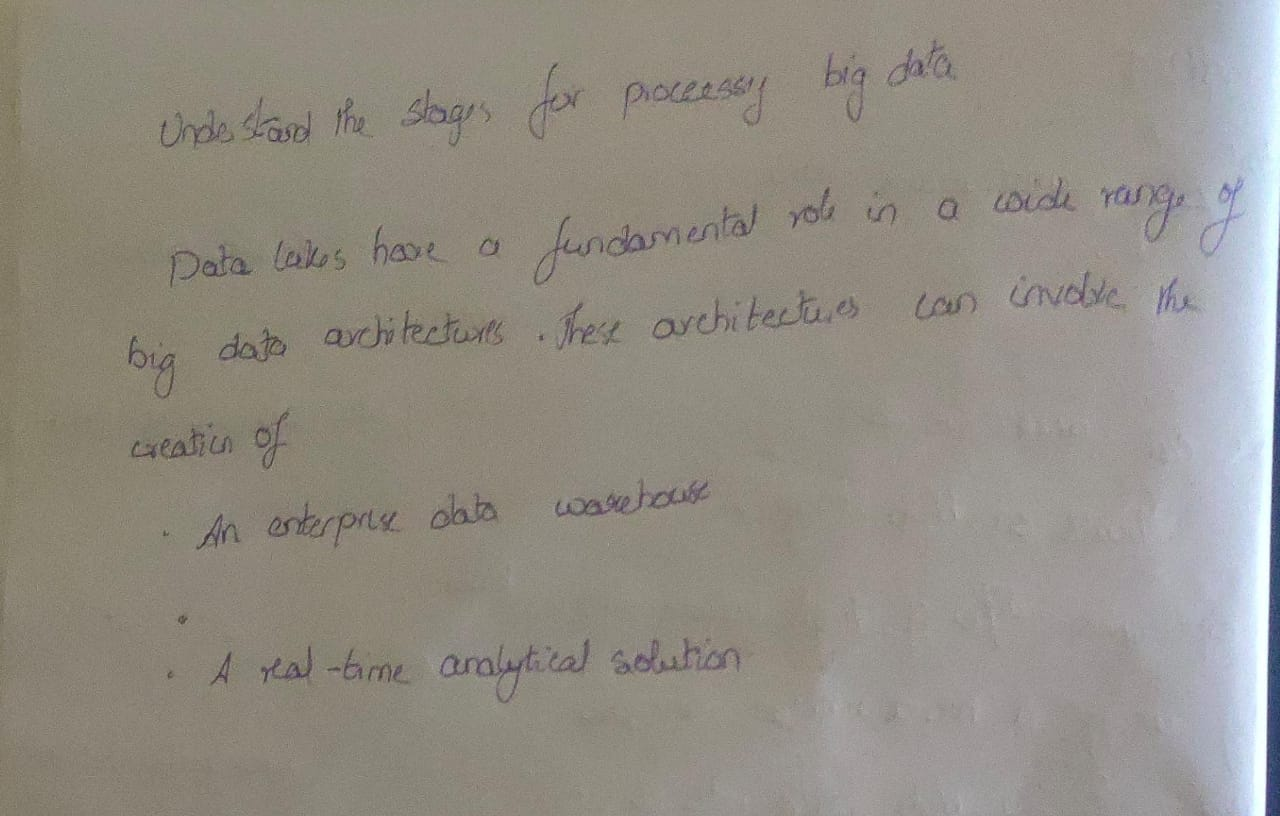 Understand the stages for processing big data
Data lakes have a fundamental role in a wide range of
big data architectures. These architectures can involve the
creation of
· An enterprise data warehouse
·
· A real-time analytical solution